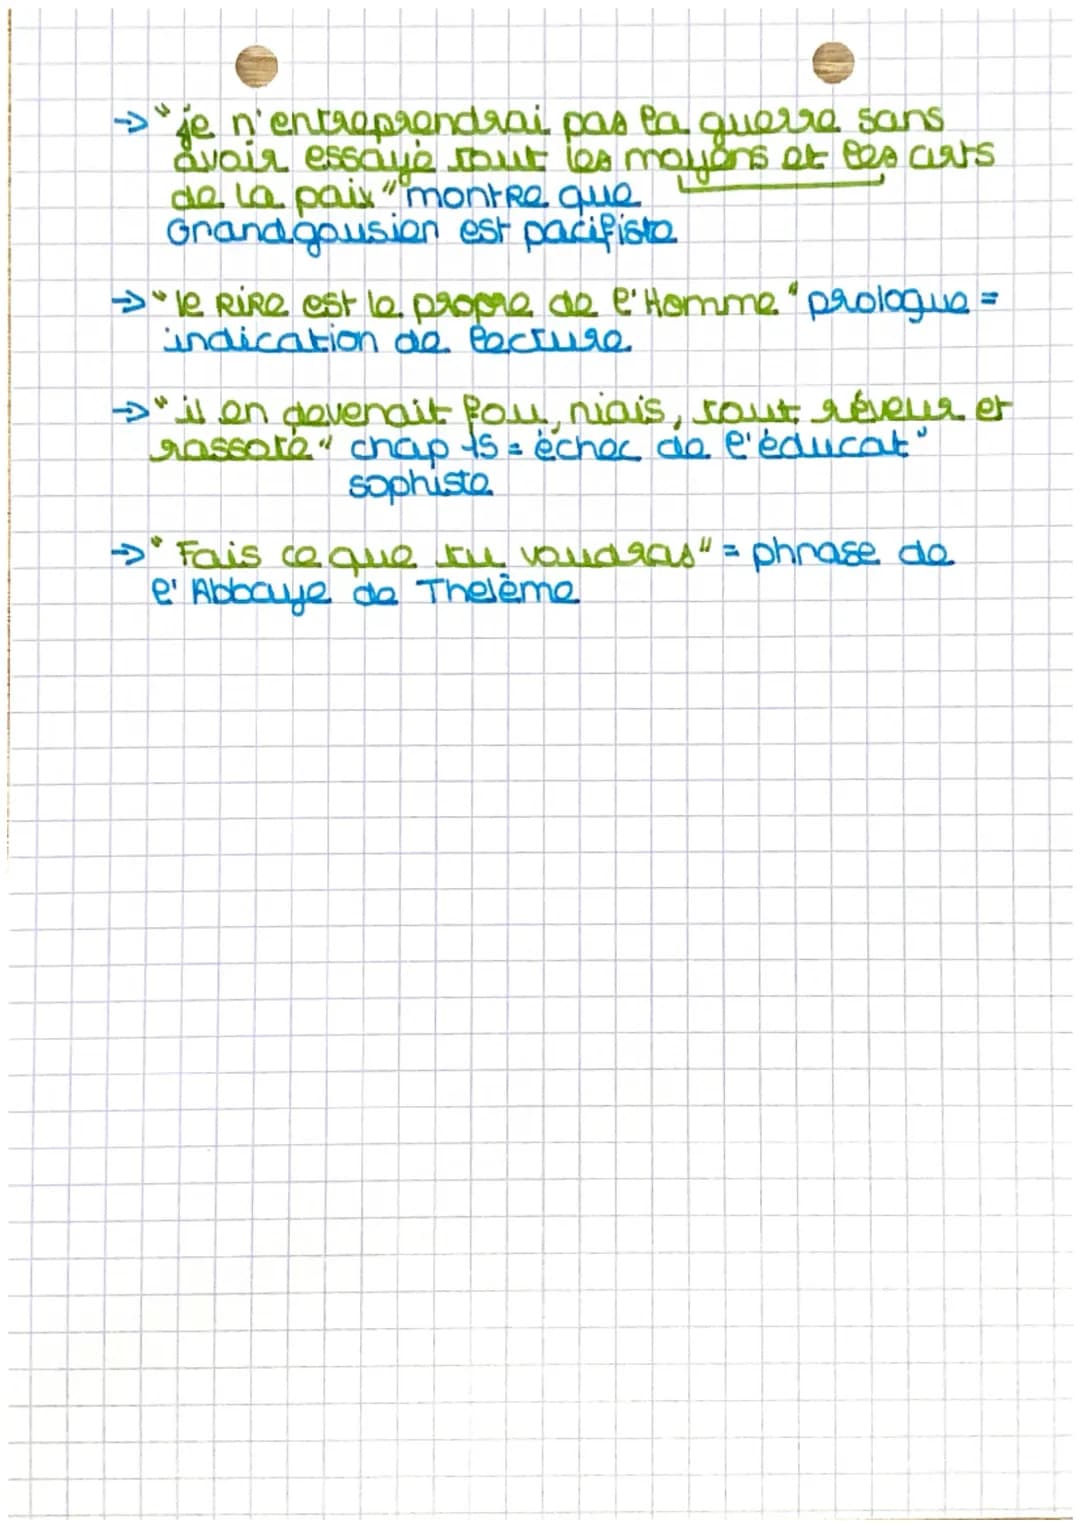 → "je n'entreprendrai pas la guerre sans
avoir essayé tout les moyens et les arts
de la paix" montre que
Grandgousier est pacifiste
→ "le rire est le propre de l'Homme" prologue =
indication de lecture
→ "il en devenait fou, niais, tout rêveur et
rassoté" chap 15 = échec de l'éducat°
sophiste
→ "Fais ce que tu voudras" = phrase de
l'Abbaye de Thelème